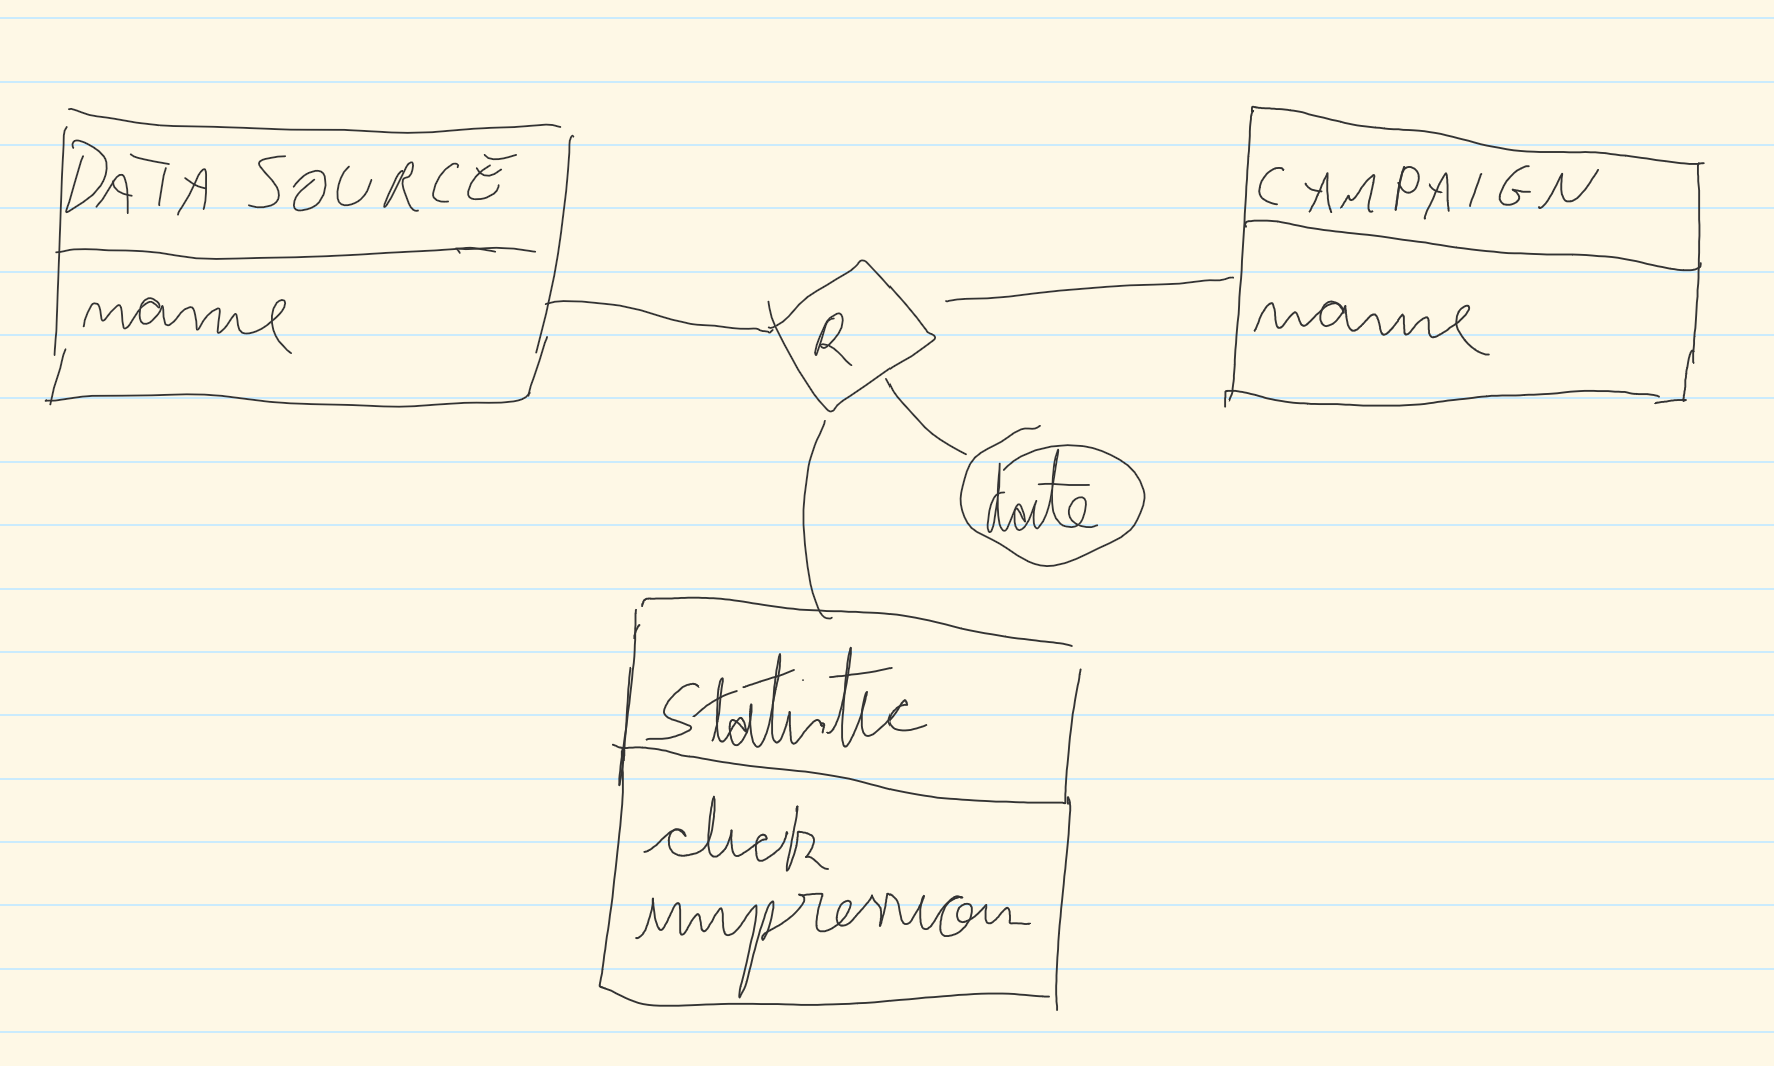 DATA SOURCE
name
CAMPAIGN
name
R
date
Statistic
click
impression